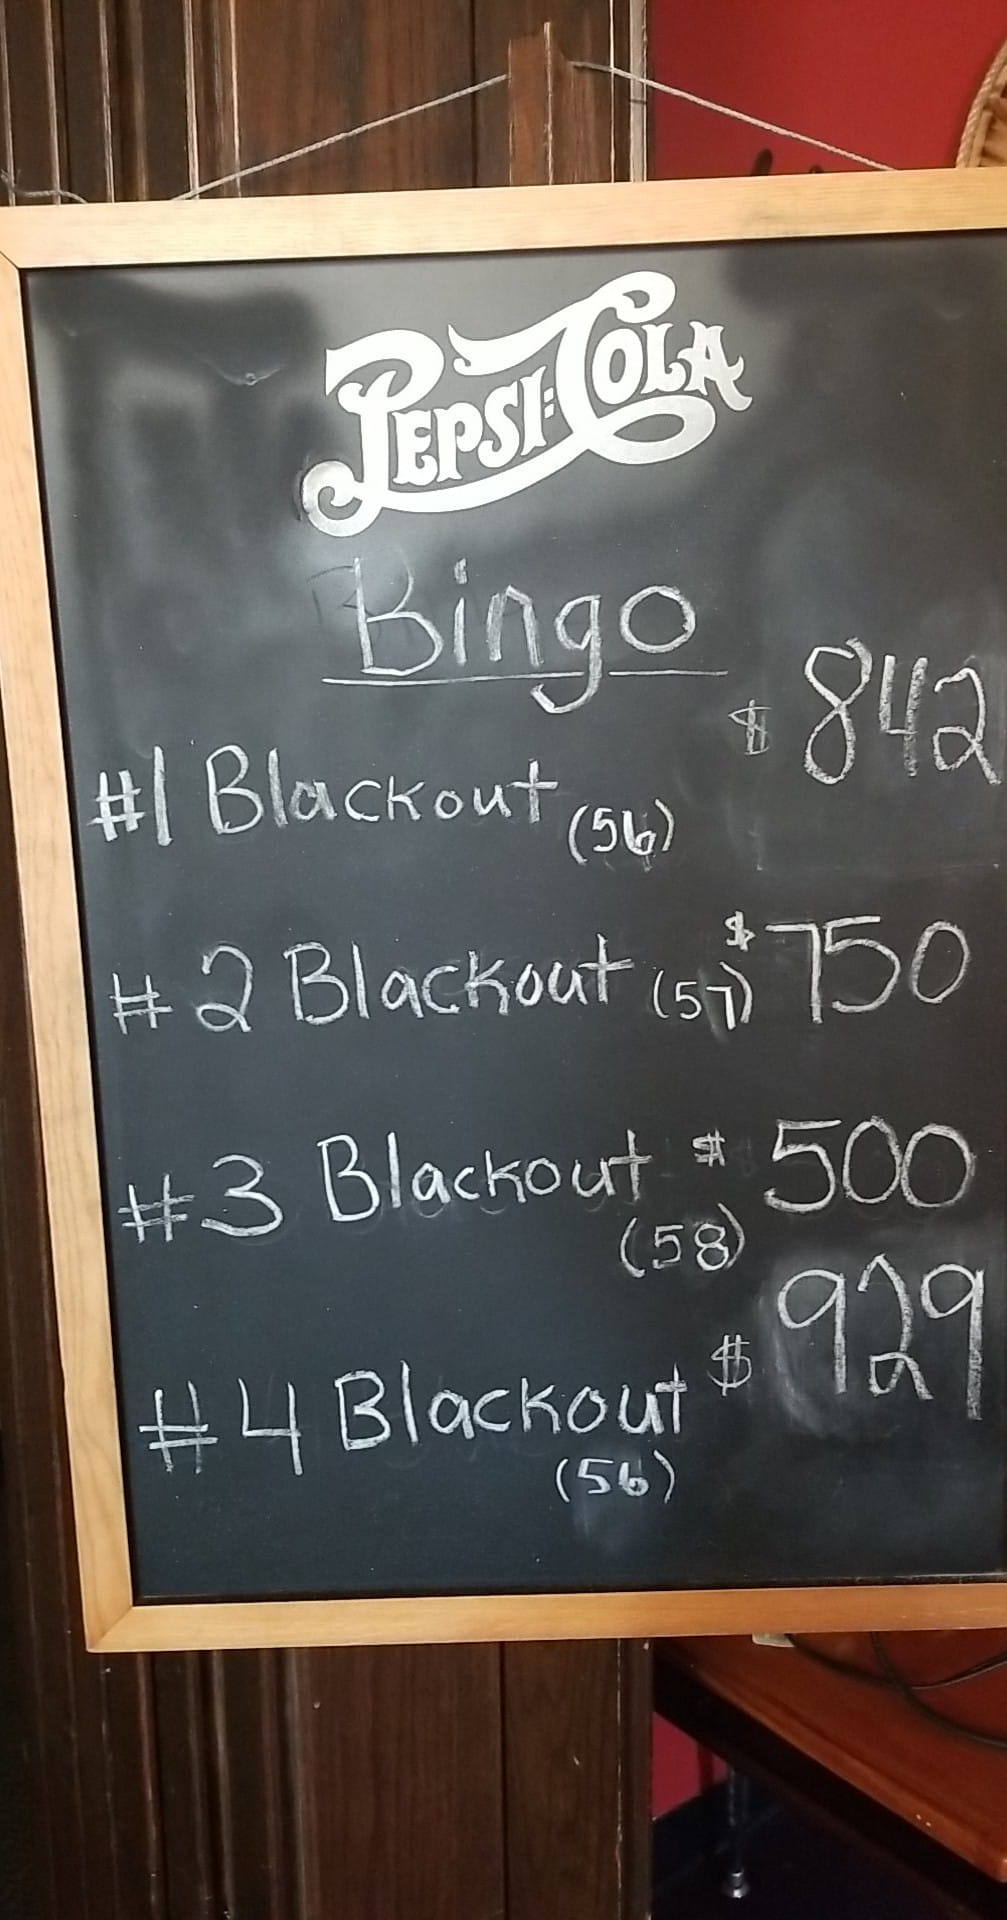 PEPSI=COLA
Bingo
#1 Blackout (56) $ 842
#2 Blackout (57) $ 750
#3 Blackout (58) $ 500
#4 Blackout (56) $ 929